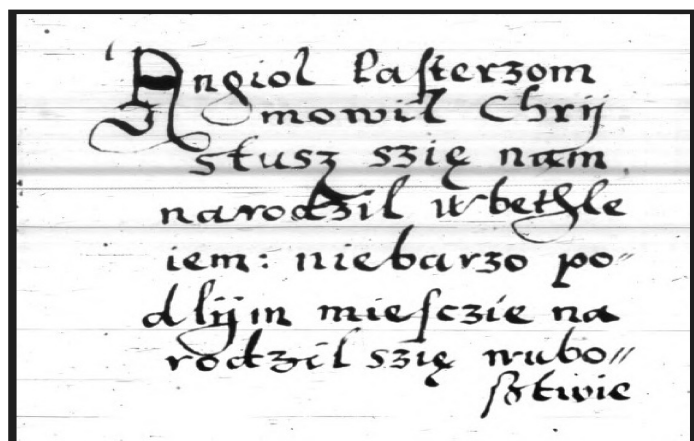 Angiol Pasterzom
mowil Chrÿ
stusz szię nam
narodzil wbethle
iem: niebarzo po=
dlÿm miesczie na
rodzil szię wubo=
sztwie